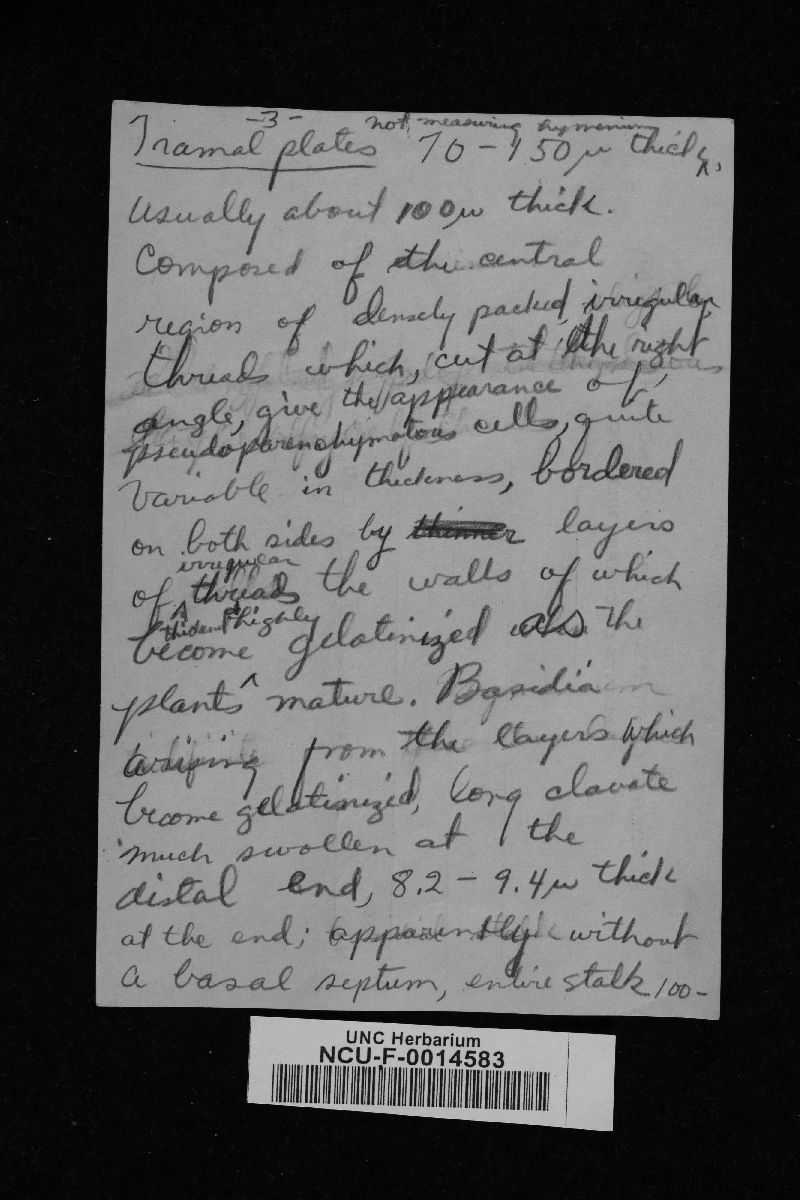 -3-
not measuring hymenium
Tramal plates 70-150µ thick,
usually about 100µ thick.
Composed of the central
region of densely packed irregular
threads which, cut at the right
angle, give the appearance of
pseudoparenchymatous cells, quite
variable in thickness, bordered
on both sides by thinner layers
irregular
of threads the walls of which
thicken & highly
become gelatinized as the
plants mature. Basidia
arising from the layers which
become gelatinized, long clavate
much swollen at the
distal end, 8.2-9.4µ thick
at the end; apparently without
a basal septum, entire stalk 100-
UNC Herbarium
NCU-F-0014583